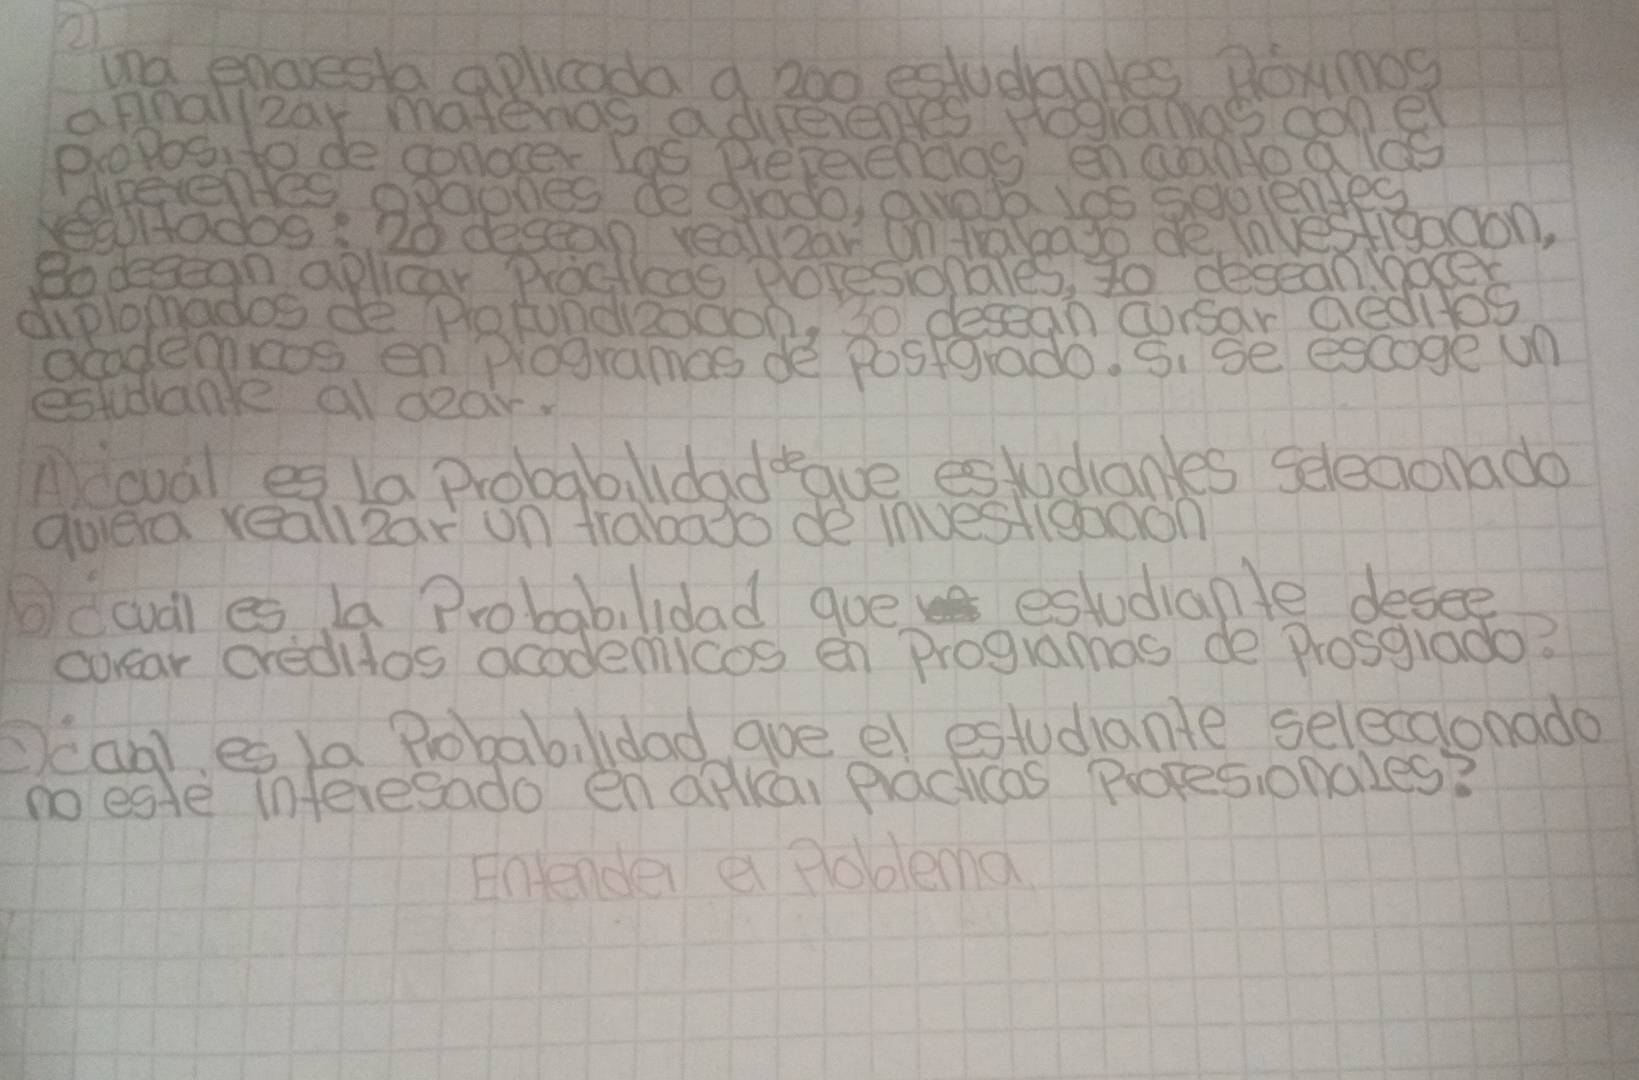 2)
una encuesta aplicada a 200 estudiantes próximos
a finalizar materias a diferentes programas con el
proposito de conocer las preferencias en cuanto a las
diferentes opciones de grado, arrojo los siguientes
resultados: 20 desean realizar un trabajo de investigacion,
80 desean aplicar prácticas profesionales, 70 desean hacer
diplomados de profundizacion, 30 desean cursar creditos
academicos en programas de postgrado. Si se escoge un
estudiante al azar.
A) ¿cuál es la Probabilidad de que estudiantes seleccionado
quiera realizar un trabajo de investigacion
b) ¿cuál es la Probabilidad que estudiante desee
cursar créditos academicos en programas de prosgrado?
c) ¿cual es la Probabilidad que el estudiante seleccionado
no esté interesado en aplicar prácticas Profesionales?
Entender el Problema